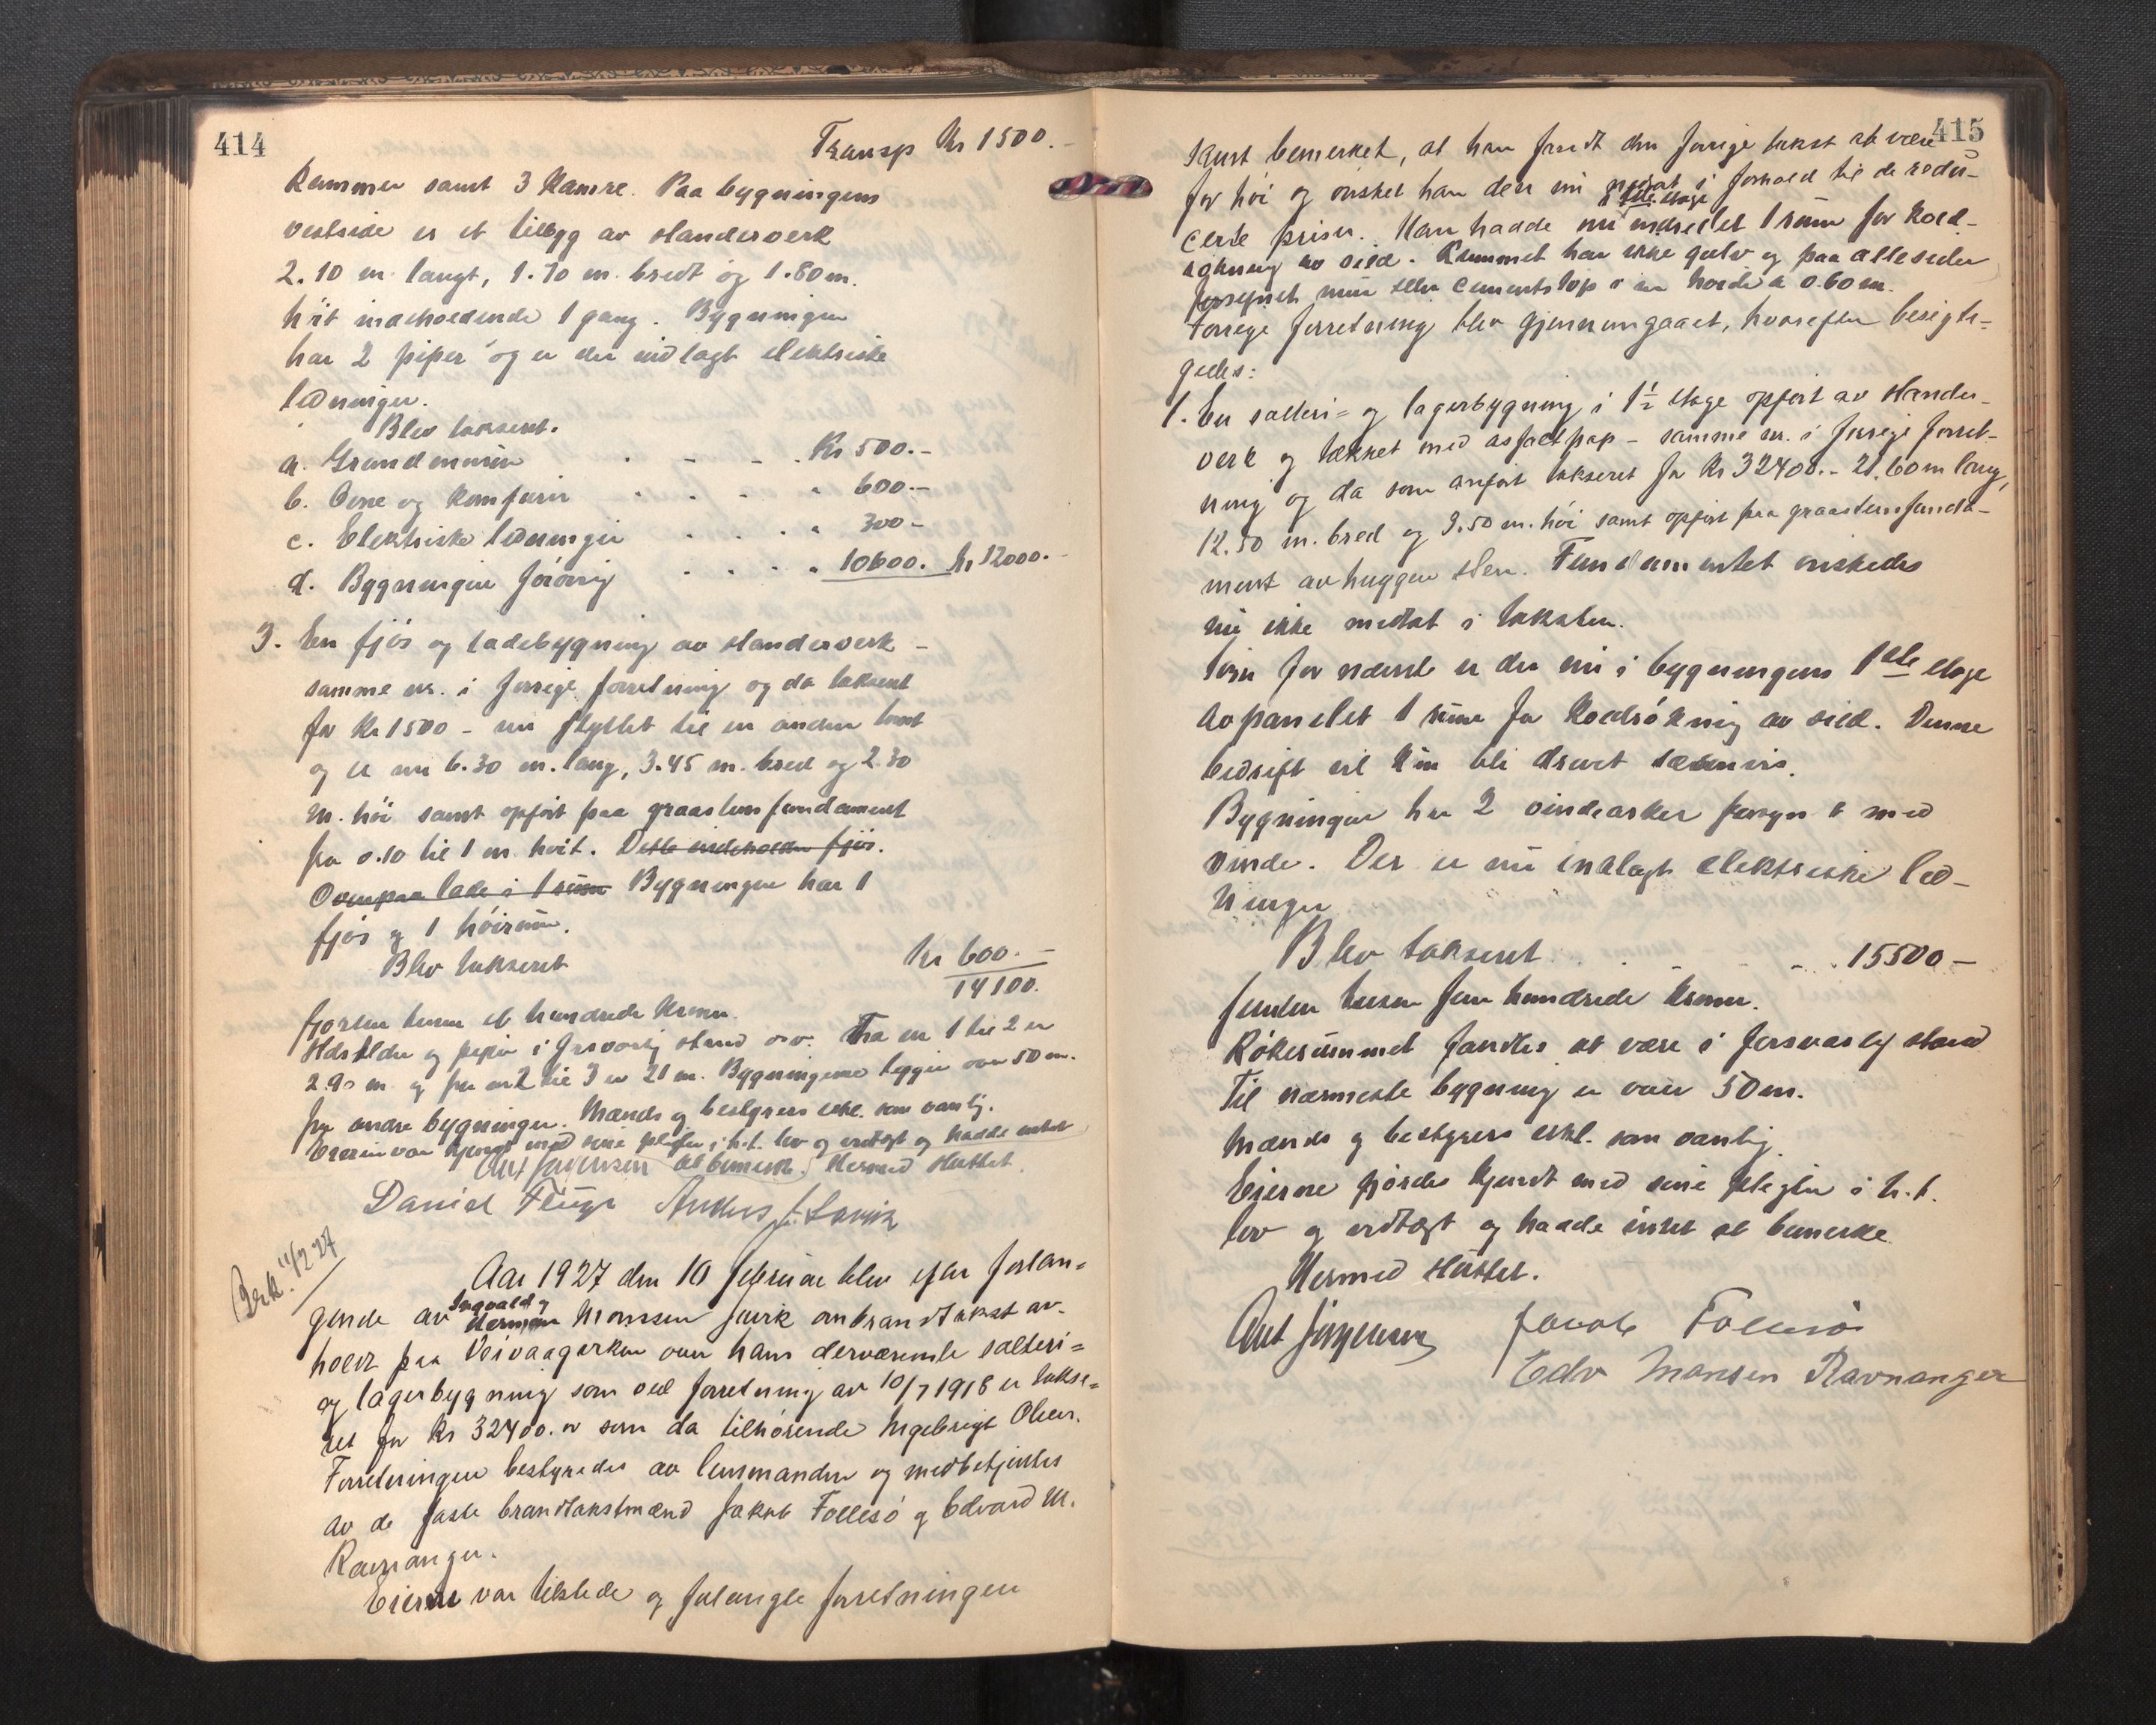 414
Transp Kr 1500.-
Kammer samt 3 Kamre. Paa bygningens
vestside er et tilbygg av standerverk
2.10 m. langt, 1.70 m. bredt og 1.80 m.
høit indeholdende 1 gang. Bygningen
har 2 piper og er der indlagt elektriske
ledninger.
Blev taksert.
a. Grundmuren . - - . Kr 500.-
b. Ovne og Komfurer . . . " 600.-
c. Elektriske ledninger . . . . " 300-
d. Bygningen forøvrig . . . . " 10600. Kr 12000.-
3. En fjøs og ladebygning av standerverk -
samme nr. i forrige forretning og da taksert
for Kr 1500 - nu flyttet til en anden tomt
og er nu 6.30 m. lang, 3.45 m. bred og 2.30
m. høi samt opført paa graastensfundament
fra 0.10 til 1 m. høit. Dette indeholder fjøs.
Ovenpaa lade i 1 rum Bygningen har 1
fjøs og 1 høirum.
Blev takseret Kr 600.-
14100.
fjorten tusen et hundrede Kroner.
Ildsteder og piper i forsvarlig stand osv. Fra nr 1 til 2 er
2.90 m. og fra nr 2 til 3 er 21 m. Bygningerne ligger over 50 m.
fra andre bygninger. Mænds og bestyrers erkl. som vanlig.
Eieren var kjendt med sine pligter i h.t. lov og vedtægt og hadde intet
at bemerke. Hermed sluttet.
Daniel Fluge Anders J.
11/2 27
Aar 1927 den 10 februar blev efter forlan=
gende av Ingvald og Herman Monssen brandtakst av-
holdt paa Veivaagarken over hans derværende salteri=
og lagerbygning som ved forretning av 10/7 1918 er takse=
ret for Kr 32400. - som da tilhørende Ingebrigt Olsen.
Forretningen bestyredes av lensmanden og medbetjentes
av de faste brandtakstmænd Jakob Follesø og Edvard M.
Ravnanger.
Eierne var tilstede og forlangte forretningen
415
Kurt bemerket, at han fandt den forrige takst at være
for høi og ønsket han den nu nedsat i forhold til de redu-
certe priser. Han hadde nu i 1ste etage indredet 1 rum for Kold-
røkning av sild. Rummet har ikke gulv og paa alle sider
forsynet mur eller cementstøp i en høide a 0.60 m.
Forrige forretning blev gjennemgaaet, hvorefter besigti=
gedes:
1. En salteri= og lagerbygning i 1½ etage opført av stander-
verk og tækket med asfaltpap - samme nr. i forrige forret-
ning og da som anført takseret for Kr 32400.- 21.60 m lang,
12.50 m. bred og 3.50 m. høi samt opført paa graastensfunda-
ment av huggen sten. Fundamentet ønskedes
nu ikke medtat i taksten.
Som for nævnt er der nu i bygningens 1ste etage
avpanelet 1 rum for Koldrøkning av sild. Denne
bedrift vil kun bli drevet sæsonvis.
Bygningen har 2 vindearker forsynt med
vinde. Der er nu indlagt elektriske led-
ninger
Blev takseret . . - - - . 15500 -
femten tusen fem hundrede Kroner.
Røkerummet fandtes at være i forsvarlig stand
Til nærmeste bygning er over 50 m.
Mænds og bestyrers erkl. som vanlig.
Eierne gjordes kjendt med sine pligter i h.t.
lov og vedtægt og hadde intet at bemerke
Hermed sluttet.
Jakob Follesø
Edv Monsen Ravnanger